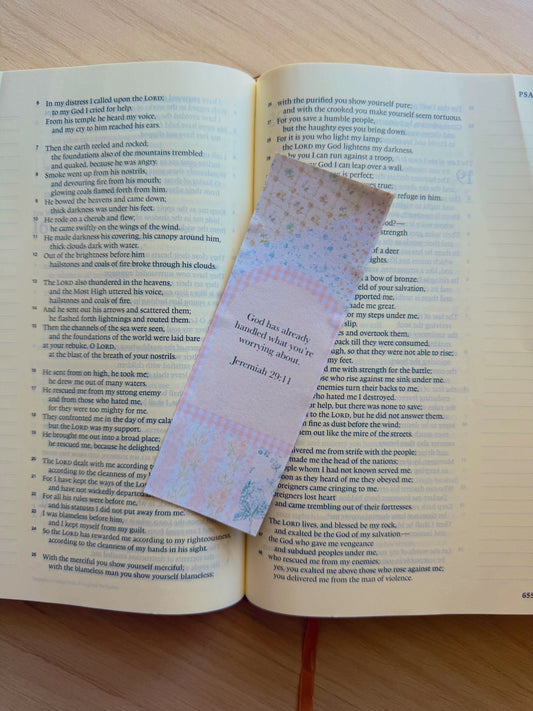 6 In my distress I called upon the LORD;
to my God I cried for help.
From his temple he heard my voice,
and my cry to him reached his ears.
7 Then the earth reeled and rocked;
the foundations also of the mountains trembled
and quaked, because he was angry.
8 Smoke went up from his nostrils,
and devouring fire from his mouth;
glowing coals flamed forth from him.
9 He bowed the heavens and came down;
thick darkness was under his feet.
10 He rode on a cherub and flew;
he came swiftly on the wings of the wind.
11 He made darkness his covering, his canopy around him,
thick clouds dark with water.
12 Out of the brightness before him
hailstones and coals of fire broke through his clouds.
13 The LORD also thundered in the heavens,
and the Most High uttered his voice,
hailstones and coals of fire.
14 And he sent out his arrows and scattered them;
he flashed forth lightnings and routed them.
15 Then the channels of the sea were seen,
and the foundations of the world were laid bare
at your rebuke, O LORD,
at the blast of the breath of your nostrils.
16 He sent from on high, he took me;
he drew me out of many waters.
17 He rescued me from my strong enemy
and from those who hated me,
for they were too mighty for me.
18 They confronted me in the day of my cala
but the LORD was my support.
19 He brought me out into a broad place;
he rescued me, because he delighted
20 The LORD dealt with me according
according to the cleanness of my
21 For I have kept the ways of the L
and have not wickedly departed
22 For all his rules were before me,
and his statutes I did not put away from me.
23 I was blameless before him,
and I kept myself from my guilt.
24 So the LORD has rewarded me according to my righteousness,
according to the cleanness of my hands in his sight.
25 With the merciful you show yourself merciful;
with the blameless man you show yourself blameless;
God has already
handled what you're
worrying about.
Jeremiah 29:11
PSA
26 with the purified you show yourself pure;
and with the crooked you make yourself seem tortuous.
27 For you save a humble people,
but the haughty eyes you bring down.
28 For it is you who light my lamp;
the LORD my God lightens my darkness.
by you I can run against a troop,
my God I can leap over a wall.
is perfect;
true;
refuge in him.
God?—
strength
a bow of bronze.
eld of your salvation,
pported me,
made me great.
or my steps under me,
slip.
and overtook them,
back till they were consumed.
gh, so that they were not able to rise;
my feet.
with strength for the battle;
ose who rise against me sink under me.
enemies turn their backs to me,
who hated me I destroyed.
or help, but there was none to save;
to the LORD, but he did not answer them.
fine as dust before the wind;
em out like the mire of the streets.
delivered me from strife with the people;
made me the head of the nations;
people whom I had not known served me.
soon as they heard of me they obeyed me;
foreigners came cringing to me.
oreigners lost heart
and came trembling out of their fortresses.
The LORD lives, and blessed be my rock,
and exalted be the God of my salvation—
the God who gave me vengeance
and subdued peoples under me,
who rescued me from my enemies;
yes, you exalted me above those who rose against me;
you delivered me from the man of violence.
655